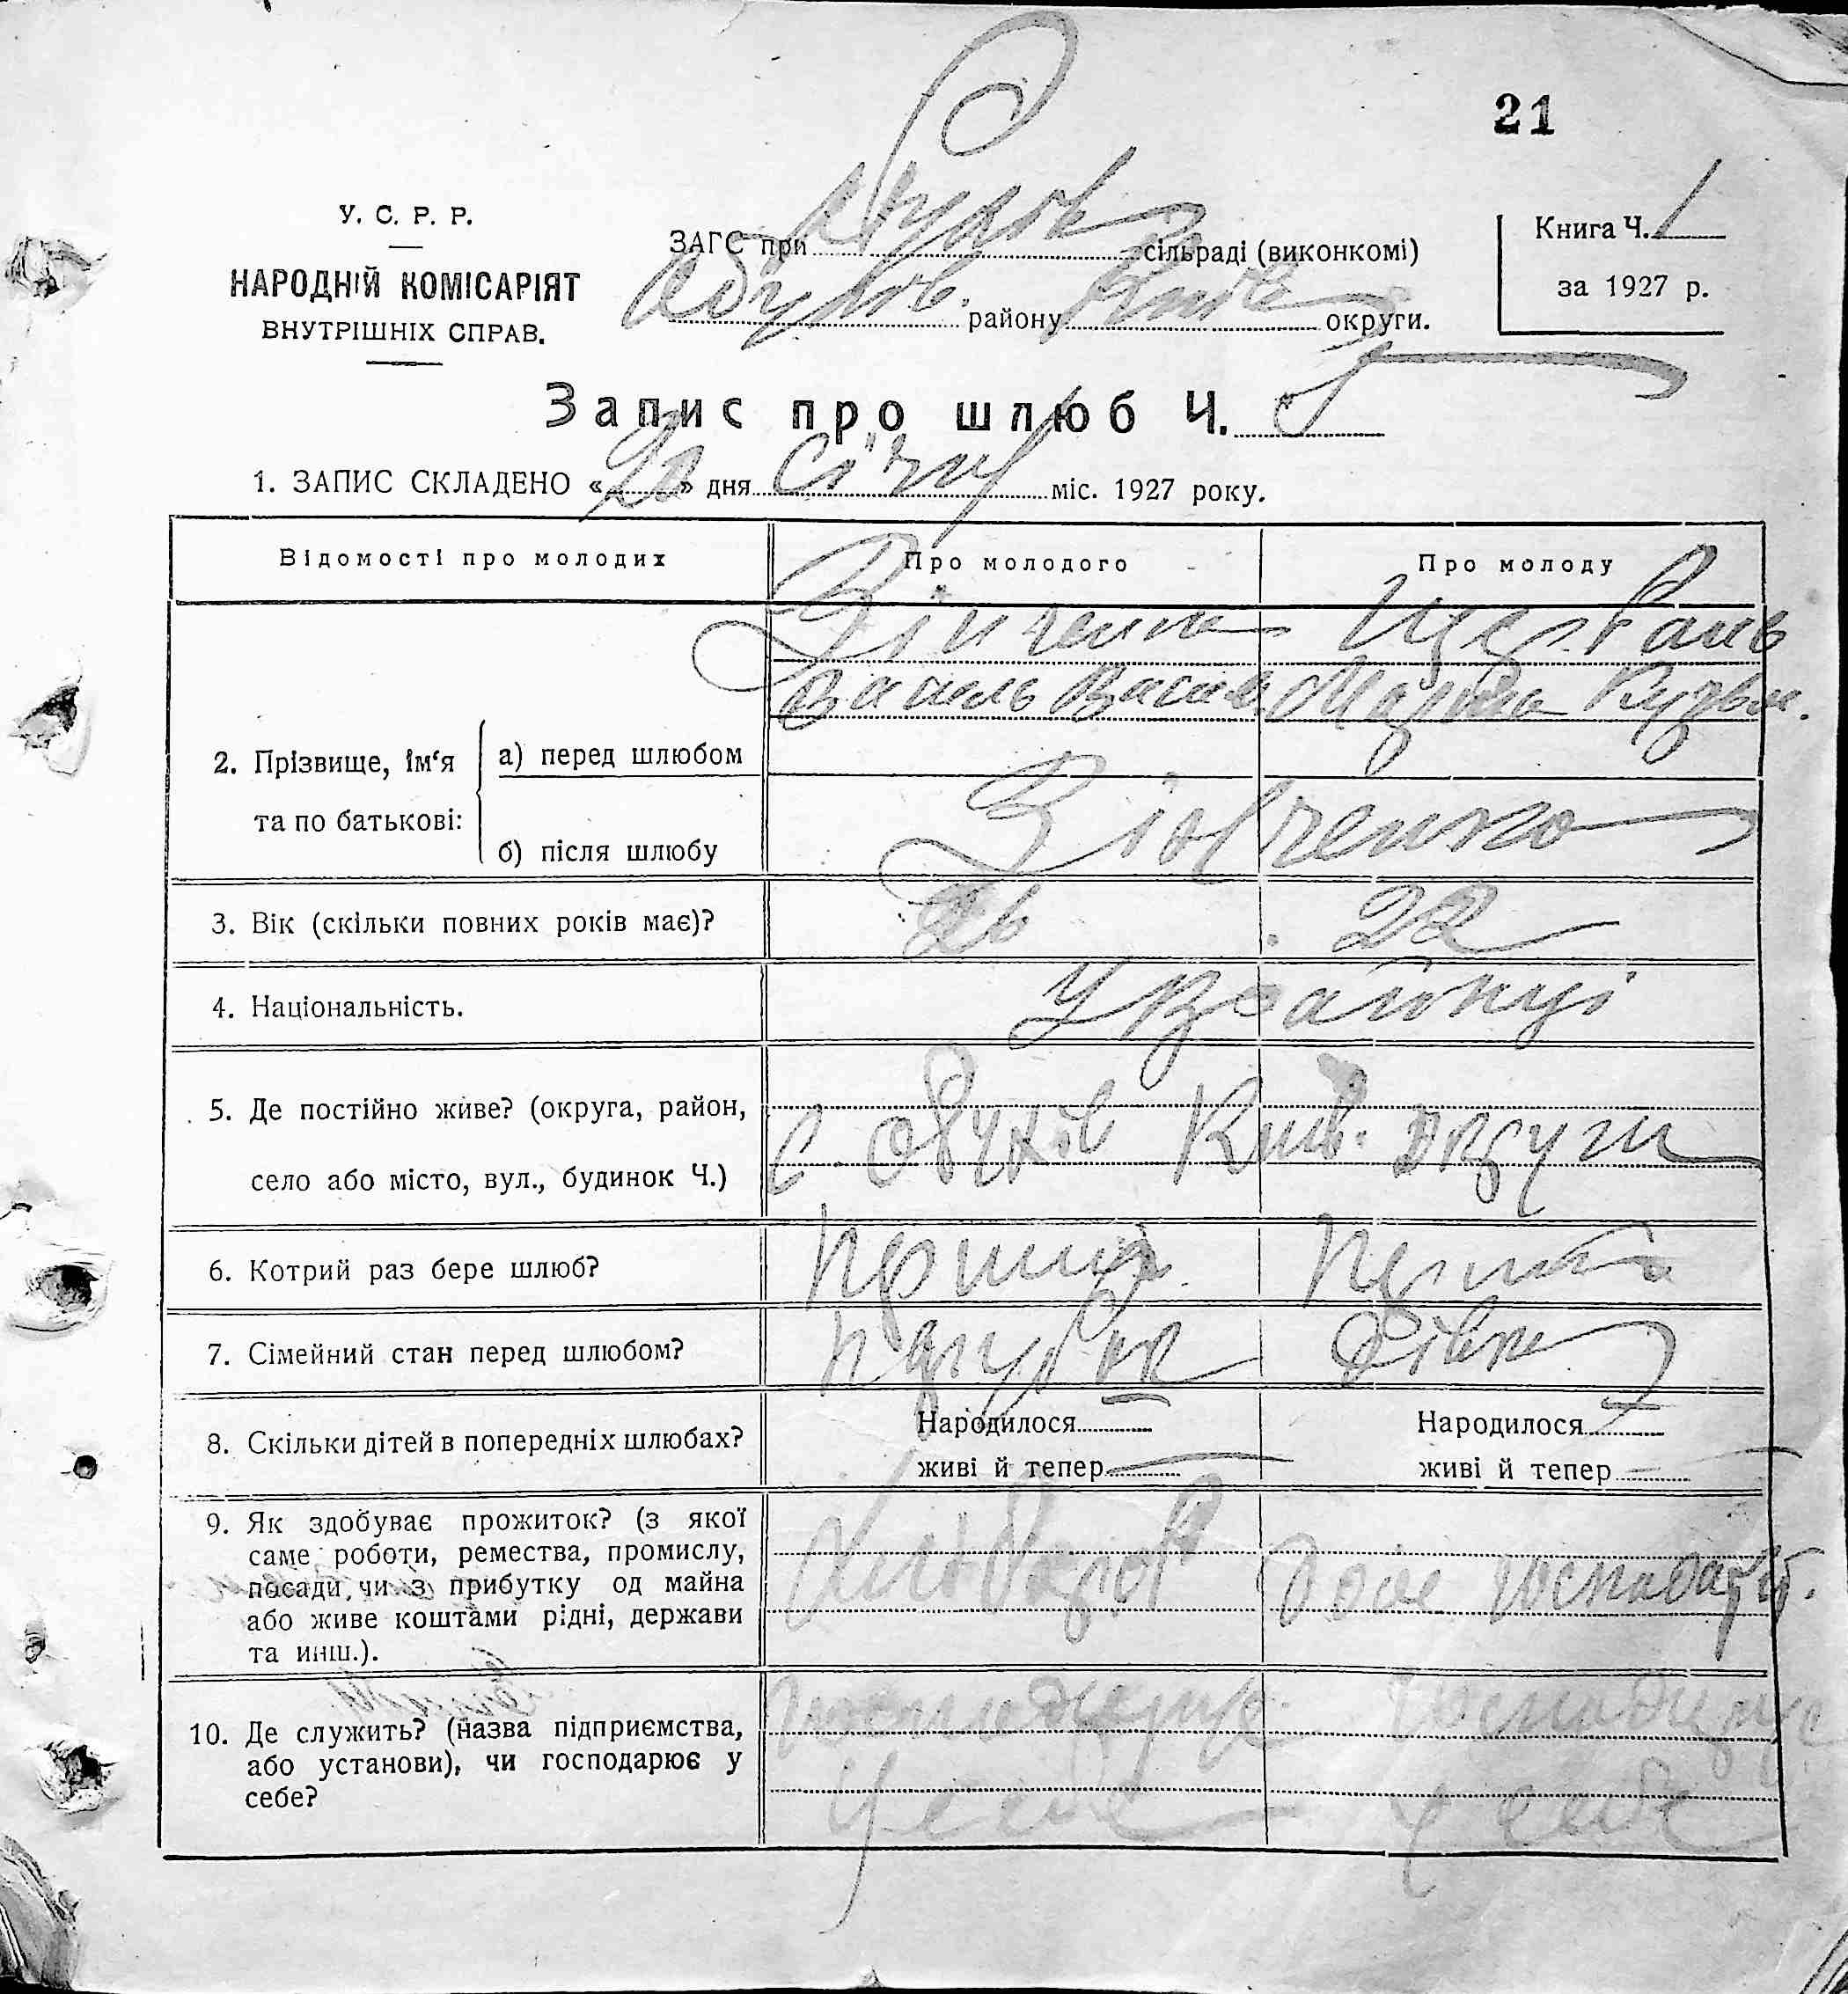 21
У. С. Р. Р.
НАРОДНІЙ КОМІСАРІЯТ
ВНУТРІШНІХ СПРАВ.
ЗАГС при Обухов сільраді (виконкомі)
Обухов. району Київ округи.
Книга Ч. 1
за 1927 р.
Запис про шлюб Ч.
1. ЗАПИС СКЛАДЕНО «20» дня Січня міс. 1927 року.
Відомості про молодих Про молодого Про молоду
2. Прізвище, ім‘я та по батькові:
а) перед шлюбом
Василь Васил. Марія Кузьм.
б) після шлюбу
3. Вік (скільки повних років має)? 26 22
4. Національність. Українці
5. Де постійно живе? (округа, район,
село або місто, вул., будинок Ч.)
с. Обухів Київ. округи
6. Котрий раз бере шлюб? Перший Перший
7. Сімейний стан перед шлюбом? Парубок Дівка
8. Скільки дітей в попередніх шлюбах?
Народилося — Народилося —
живі й тепер — живі й тепер —
9. Як здобуває прожиток? (з якої
саме роботи, ремества, промислу,
посади, чи з прибутку од майна
або живе коштами рідні, держави
та инш.).
Хлібороб
10. Де служить? (назва підприємства,
або установи), чи господарює у
себе?
Господарює Господарює
у себе у себе